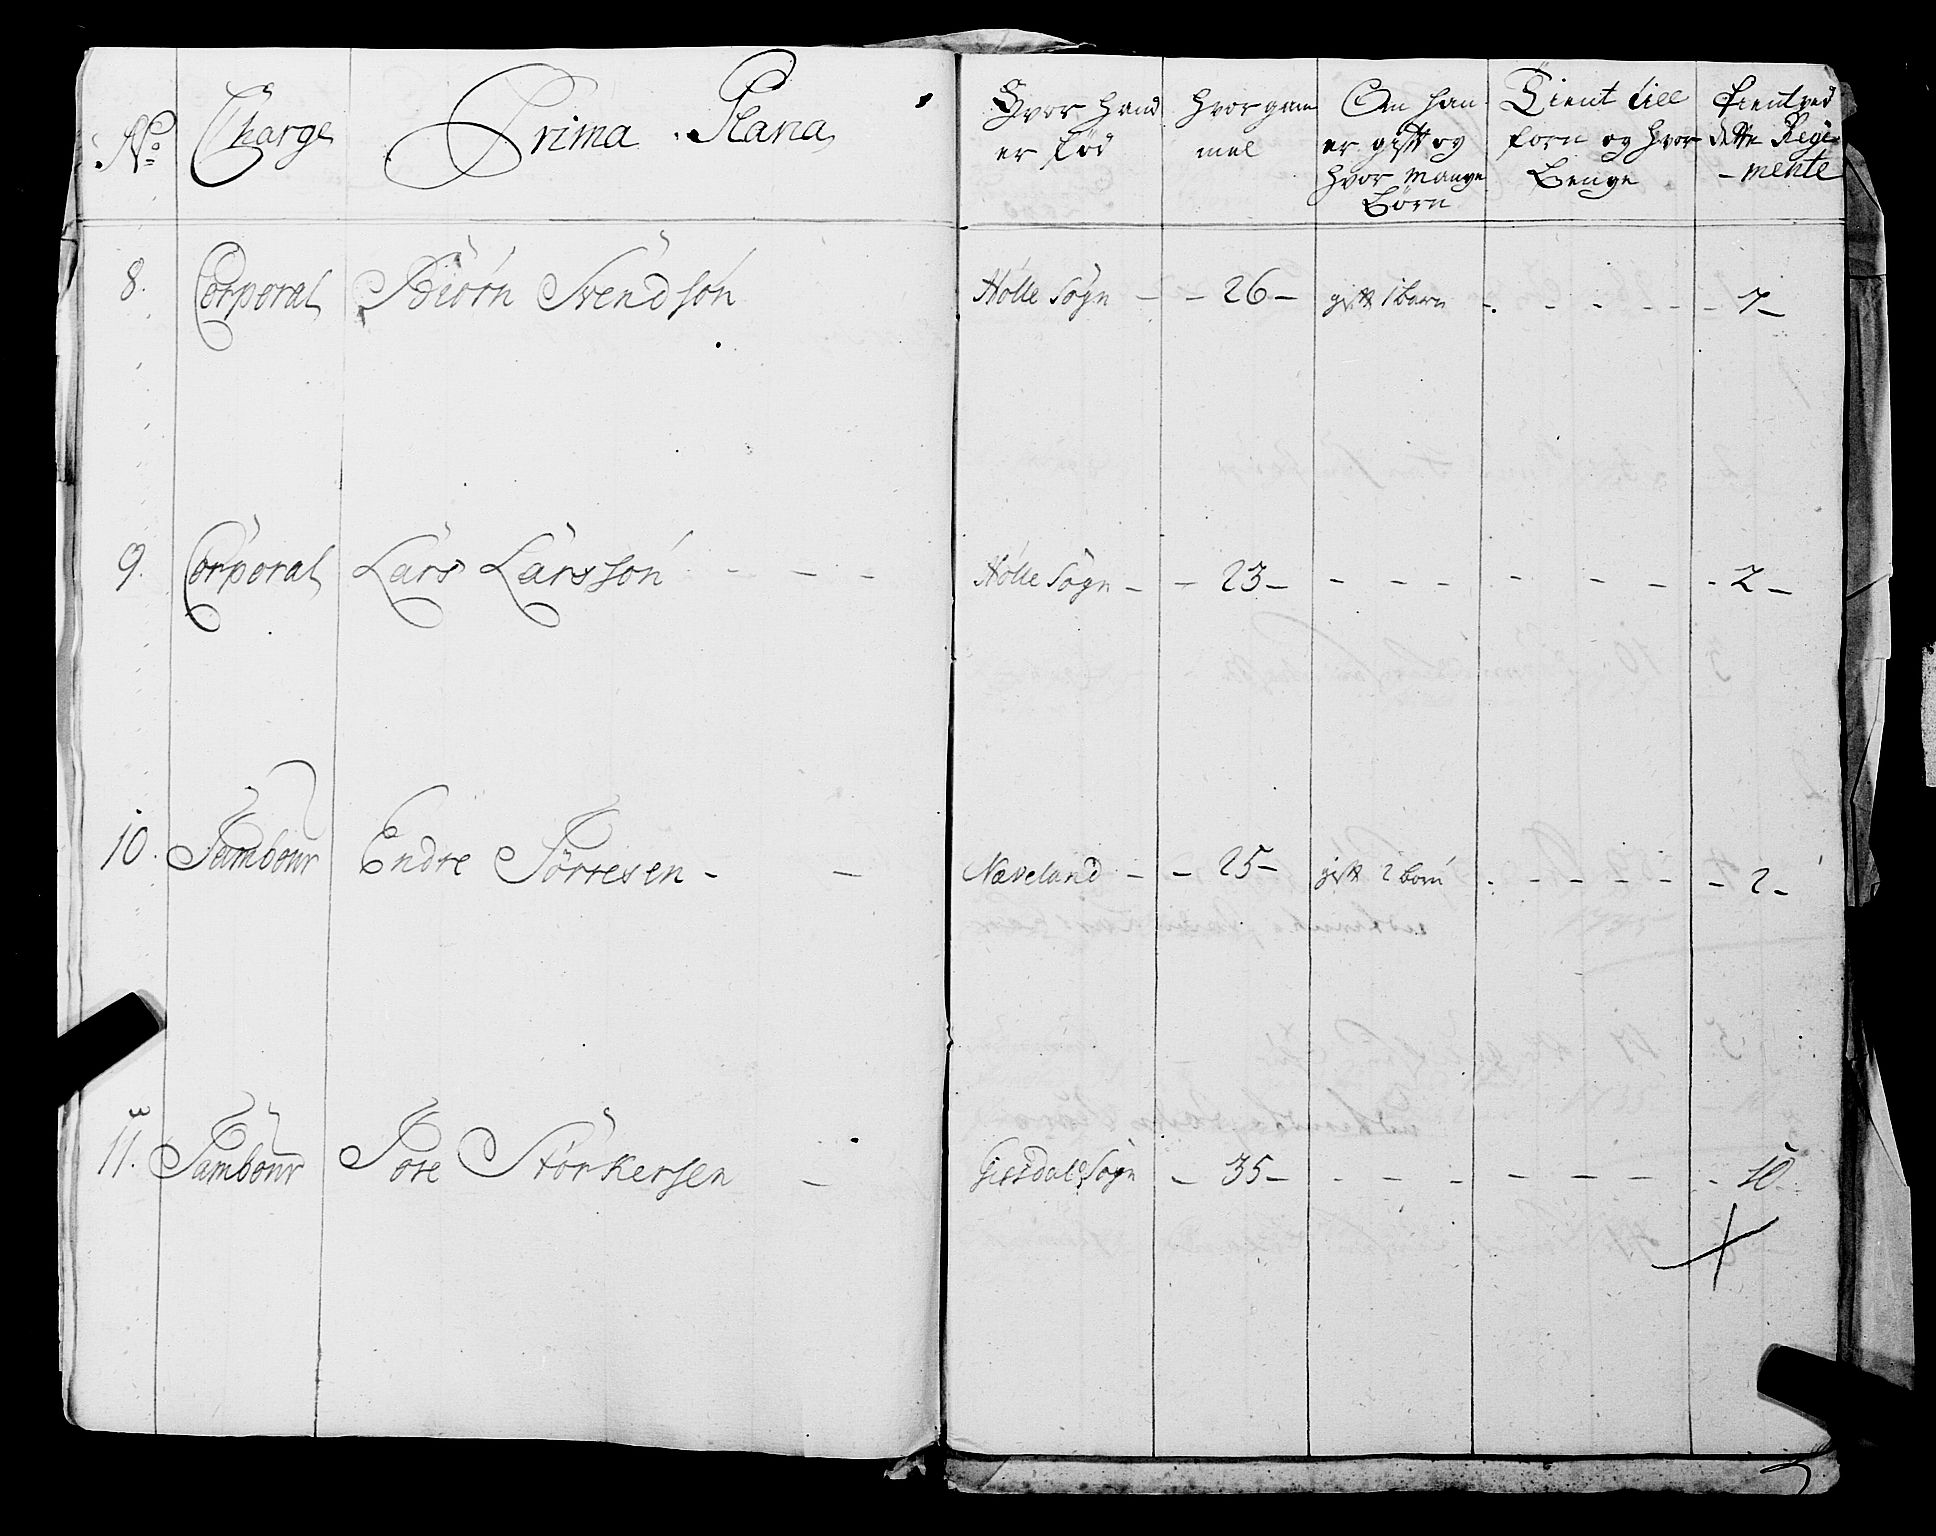 No Charge Prima Plana
Hvor hand er fød
Hvor gam mel
Om han er gift og hvor mange Børn
Tient till forn og hvor Lenge
tient ved dette Regi- mente
8. Corporal Biørn Svendsøn Hølle Sogn - - 26 - gift 1 barn - - - - 7 -
9. Corporal Lars Larssøn - - - Hølle Sogn - - 23 - - - - - - - - 2 -
10. Tambour Endre Tørresen - - Næveland - - 25 - gift 2 børn - - - - - - 2 -
11. Tambour Tore Størkersen - Giesdal Sogn - 35 - - - - - - - - 10